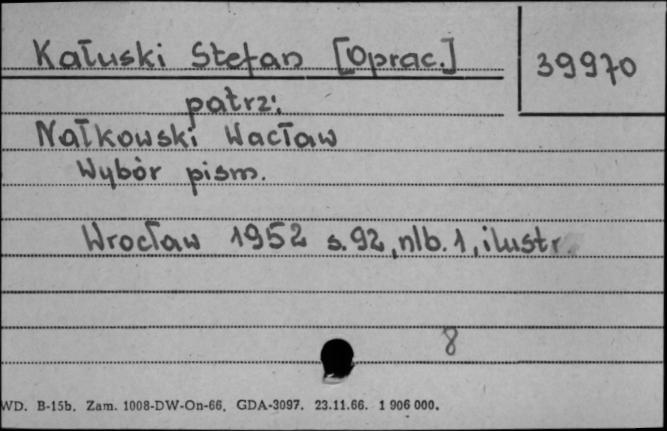 Kałuski Stefan [Oprac.]
39970
patrz:
Nałkowski Wacław
Wybór pism.
Wrocław 1952 s.92, nlb.1, ilustr.
8
WD. B-15b. Zam. 1008-DW-On-66. GDA-3097. 23.11.66. 1 906 000.